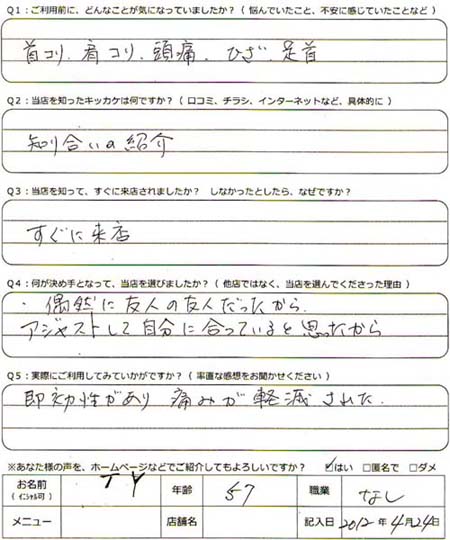 Q1：ご利用前に、どんなことが気になっていましたか？（ 悩んでいたこと、不安に感じていたことなど ）
首コリ、肩コリ、頭痛、ひざ、足首
Q2：当店を知ったキッカケは何ですか？（ 口コミ、チラシ、インターネットなど、具体的に ）
知り合いの紹介
Q3：当店を知って、すぐに来店されましたか？　しなかったとしたら、なぜですか？
すぐに来店
Q4：何が決め手となって、当店を選びましたか？（ 他店ではなく、当店を選んでくださった理由 ）
・偶然に友人の友人だったから
アジャストして自分に合っていると思ったから
Q5：実際にご利用してみていかがですか？（ 率直な感想をお聞かせください ）
即効性があり 痛みが軽減された.
※あなた様の声を、ホームページなどでご紹介してもよろしいですか？　☑はい　□匿名で　□ダメ
お名前（イニシャル可） TY 年齢 57 職業 なし
メニュー 店舗名 記入日 2012年 4月24日